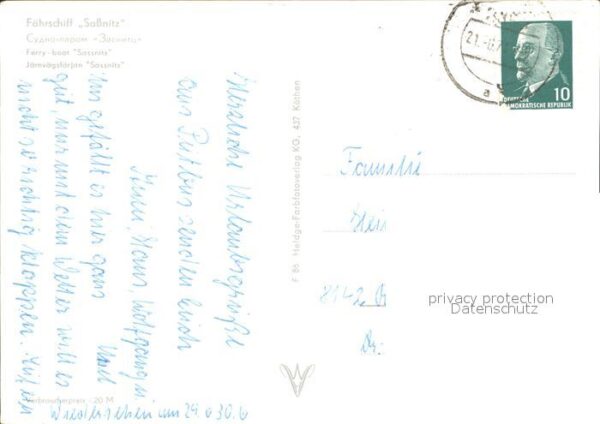 Fährschiff „Saßnitz"
Судно-паром «Засниц»
Ferry-boat "Sassnitz"
Järnvägsfärjan "Sassnitz"
Herzliche Urlaubsgrüße
aus Putbus senden Euch
Hans, Wolfgang u.
Uns gefällt es hier ganz
gut, nur mit dem Wetter will es
nicht so richtig klappen.
Wiedersehen am 29. 6 30. 6
Verbraucherpreis -,20 M
F 86 Heldge-Farbfotoverlag KG, 437 Köthen
21.-6.
a
10
DEUTSCHE
DEMOKRATISCHE REPUBLIK
Familie
8142
privacy protection
Datenschutz